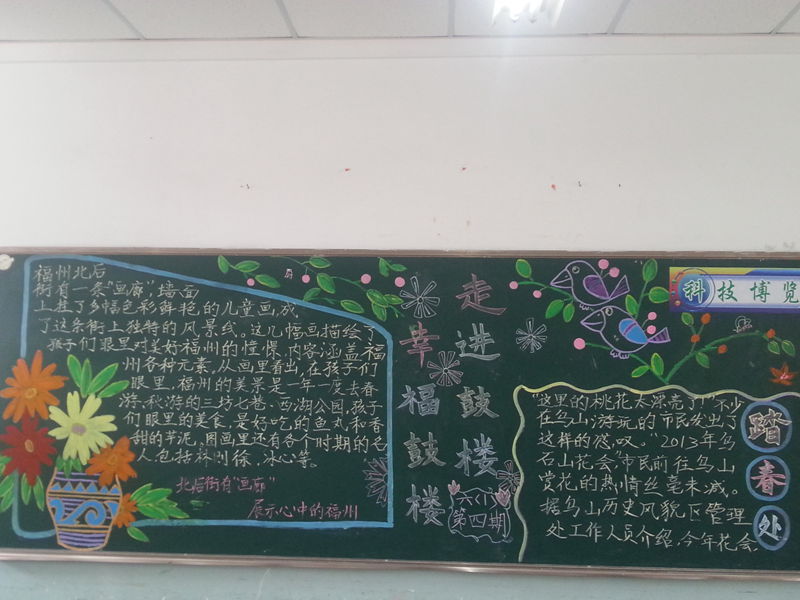 福州北后
街有一条"画廊",墙面
上挂了多幅色彩鲜艳的儿童画,成
了这条街上独特的风景线。这几幅画描绘了
孩子们眼里对美好福州的憧憬,内容涵盖福
州各种元素,从画里看出,在孩子们
眼里,福州的美景是一年一度去春
游、秋游的三坊七巷、西湖公园,孩子
们眼里的美食,是好吃的鱼丸和香
甜的芋泥,用画里还有各个时期的名
人,包括林则徐、冰心等。
北后街有"画廊"
展示心中的福州
走进鼓楼
幸福鼓楼
六(1)
第四期
科技博览
"这里的桃花太漂亮了!"不少
在乌山游玩的市民发出了
这样的感叹。"2013年乌
石山花会,市民前往乌山
赏花的热情丝毫未减。
据乌山历史风貌区管理
处工作人员介绍,今年花会
踏春处